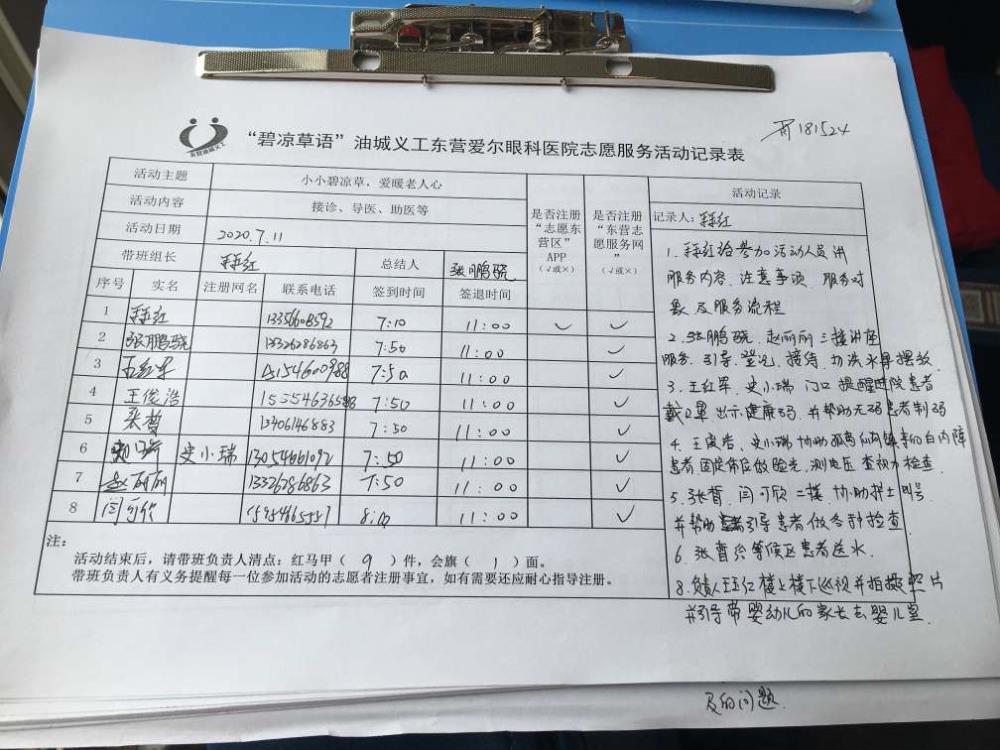 181524
“碧凉草语”油城义工东营爱尔眼科医院志愿服务活动记录表
活动主题 小小碧凉草，爱暖老人心
活动内容 接诊、导医、助医等
活动日期 2020.7.11
带班组长 总结人 张鹏骁
是否注册“志愿东营区”APP（√或×）
是否注册“东营志愿服务网”（√或×）
序号 实名 注册网名 联系电话 签到时间 签退时间
1 13356608592 7:10 11:00 ✓ ✓
2 张鹏骁 13326286863 7:50 11:00 ✓
3 7:50 11:00 ✓
4 王俊浩 7:50 11:00 ✓
5 张哲 13406146883 7:50 11:00 ✓
6 史小瑞 13054661092 7:50 11:00 ✓
7 赵丽丽 13326286863 7:50 11:00 ✓
8 闫可欣 11:00 ✓
注：
活动结束后，请带班负责人清点：红马甲（ 9 ）件，会旗（ 1 ）面。
带班负责人有义务提醒每一位参加活动的志愿者注册事宜，如有需要还应耐心指导注册。
活动记录
记录人：
1. 给参加活动人员讲
服务内容、注意事项、服务对
象及服务流程
2. 张鹏骁、赵丽丽 三楼讲座
服务、引导、登记、接待
3. 王红军、史小瑞 门口提醒进院患者
戴口罩 出示健康码 并帮助无码患者制码
4. 史小瑞 协助 的白内障
患者 做验光，测电压 查视力检查
5. 张哲、闫可欣 二楼 协助护士叫号
并帮助 引导患者做各种检查
6. 张哲给等候区患者送水
8. 负责人 楼上楼下巡视并拍摄照片
并引导带婴幼儿的家长去婴儿室.
及的问题.